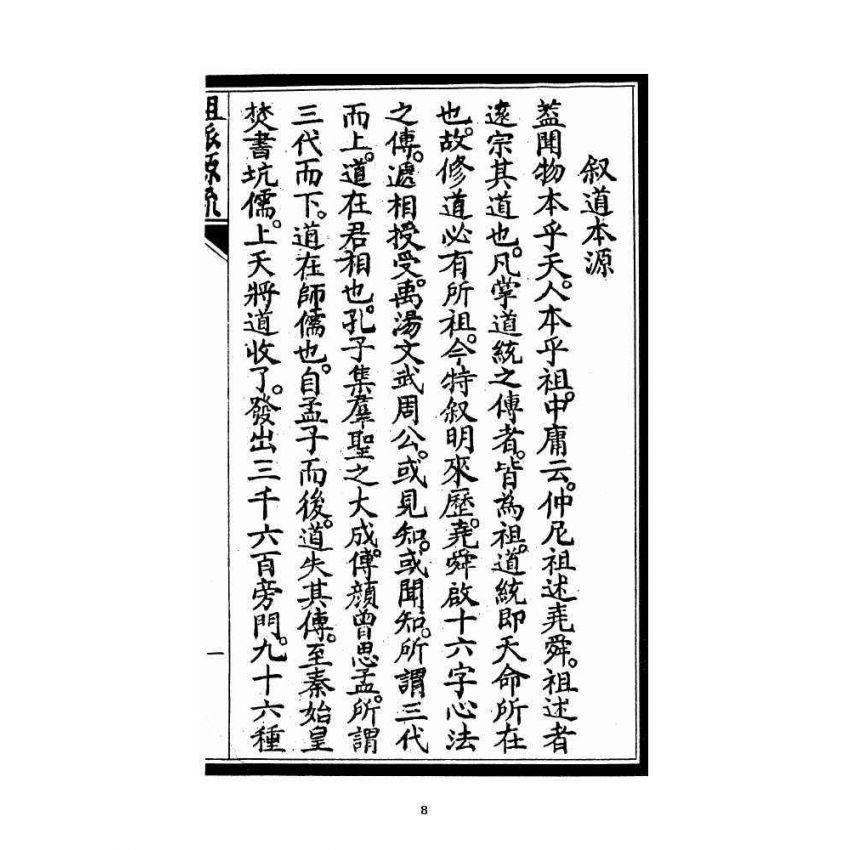 叙道本源
葢聞物本乎天。人本乎祖。中庸云。仲尼祖述堯舜。祖述者
遠宗其道也。凡掌道統之傳者。皆為祖。道統即天命所在
也。故修道必有所祖。今特叙明來歷。堯舜啟十六字心法
之傳。遞相授受。禹湯文武周公。或見知。或聞知。所謂三代
而上。道在君相也。孔子集羣聖之大成。傳顏曾思孟。所謂
三代而下。道在師儒也。自孟子而後。道失其傳。至秦始皇
焚書坑儒。上天將道收了。發出三千六百旁門。九十六種
祖派源流
一
8